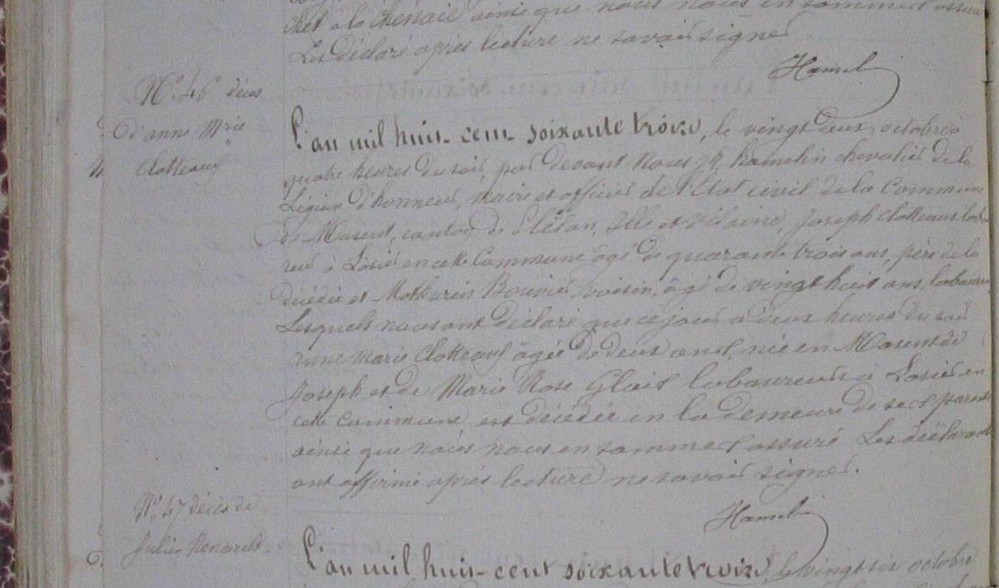 chet à la Chenaie ainsi que nous nous en sommes assuré
Les déclaré après lecture ne savoir signer
Hamelin
N° 46 décès
d'anne Mrie
Clotteaux
L'an mil huit-cent soixante trois, le vingt deux octobre à
quatre heures du soir, par devant nous hamelin chevalier de la
Légion d'honneur, maire et officier de l'Etat civil de la Commune
de Maxent, canton de Plélan, Ille et Vilaine, Joseph Clotteaux labou
reur à Losier en cette Commune âgé de quarante trois ans, père de la
décédée et Mathurin Bouvier, voisin, âgé de vingt huit ans, laboureur
Lesquels nous ont déclaré que ce jour à deux heures du soir
anne Marie Clotteaux âgée de deux ans, née en Maxent de
Joseph et de Marie Rose Glais laboureurs à Losier en
cette Commune est décédée en la demeure de ses parents
ainsi que nous nous en sommes assuré Les déclarants
ont affirmé après lecture ne savoir signer.
Hamelin
N° 47 décès de
Julie
L'an mil huit-cent soixante trois, le vingt six octobre